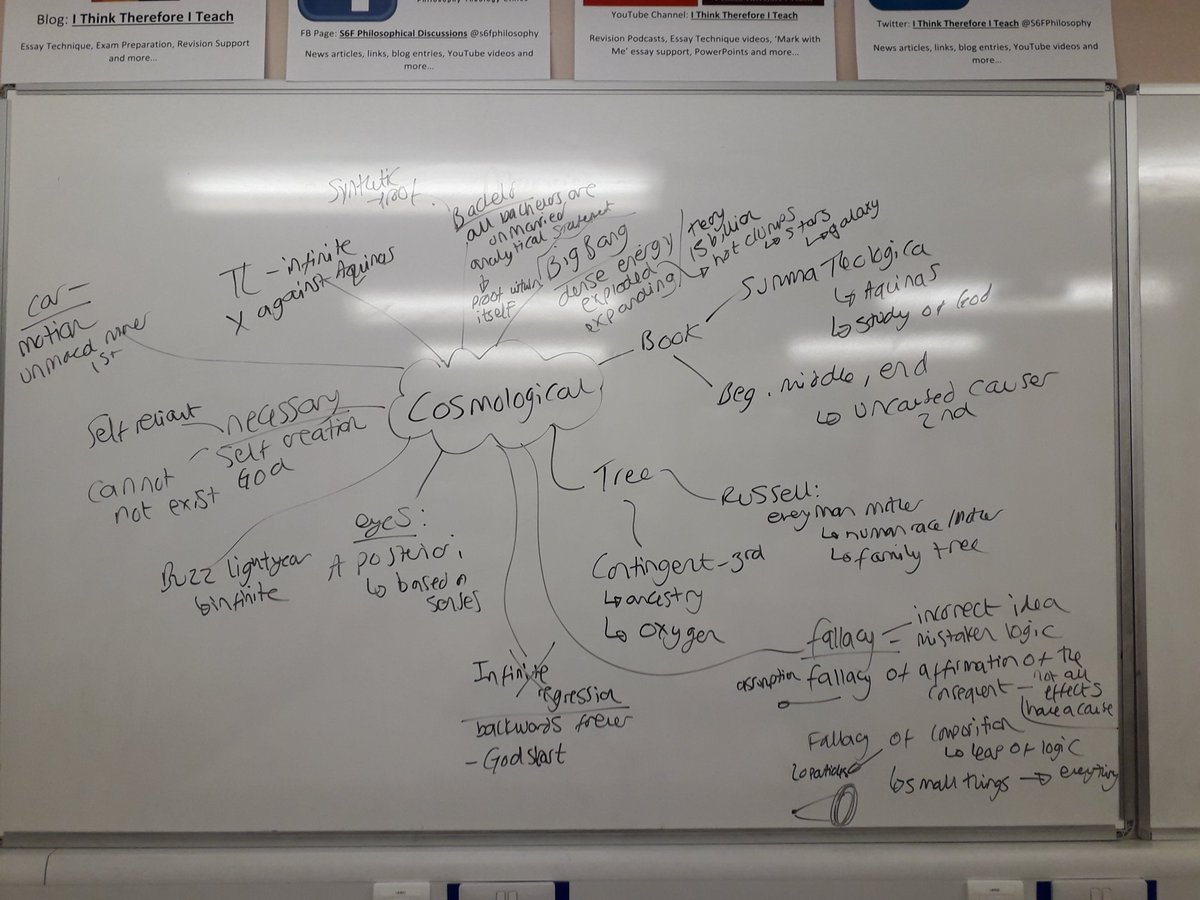 Blog: I Think Therefore I Teach
Essay Technique, Exam Preparation, Revision Support
and more...
FB Page: S6F Philosophical Discussions @s6fphilosophy
News articles, links, blog entries, YouTube videos and
more...
YouTube Channel: I Think Therefore I Teach
Revision Podcasts, Essay Technique videos, 'Mark with
Me' essay support, PowerPoints and more...
Twitter: I Think Therefore I Teach @S6FPhilosophy
News articles, links, blog entries, YouTube videos and
more...
Cosmological
Synthetic
Proof.
all bachelors are
unmarried
analytical statement
↳ proof within
itself
Big Bang
dense energy
exploded
expanding
15 billion
↳ stars
↳ galaxy
π - infinite
X against Aquinas
Car -
motion
1st
Self reliant
necessary
self creation
God
cannot
not exist
Buzz lightyear
↳ infinite
eyes:
A posteriori
↳ based on
senses
Infinite
regression
backwords
- God start
Book
Summa Theologica
↳ Aquinas
↳ Study of God
Beg. middle, end
↳ uncaused causer
2nd
Tree
Contingent - 3rd
↳ ancestry
↳ oxygen
Russell:
every man mother
↳ human race/mother
↳ family tree
fallacy - incorrect idea
- mistaken logic
assumption fallacy of affirmation of the
consequent - not all
effects
have a cause
Fallacy of composition
↳ leap of logic
↳ particles
↳ small things → everything